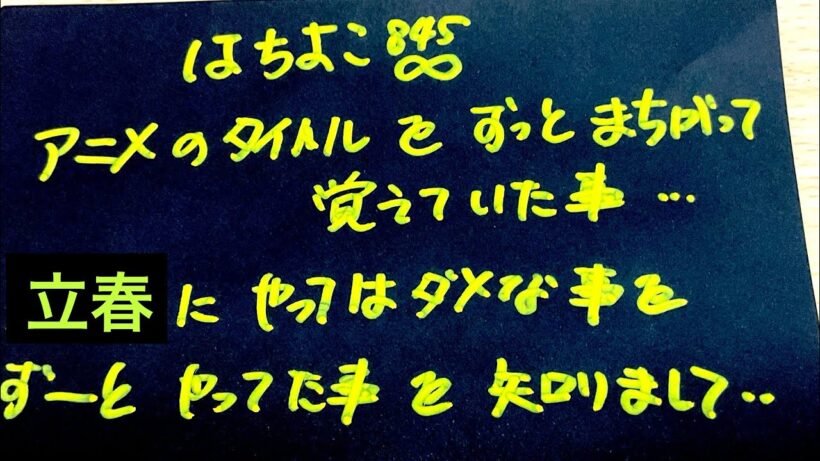 はちよこ845∞
アニメのタイトルをずっとまちがって
覚えていた事…
立春にやってはダメな事を
ずーとやってた事を知りまして‥